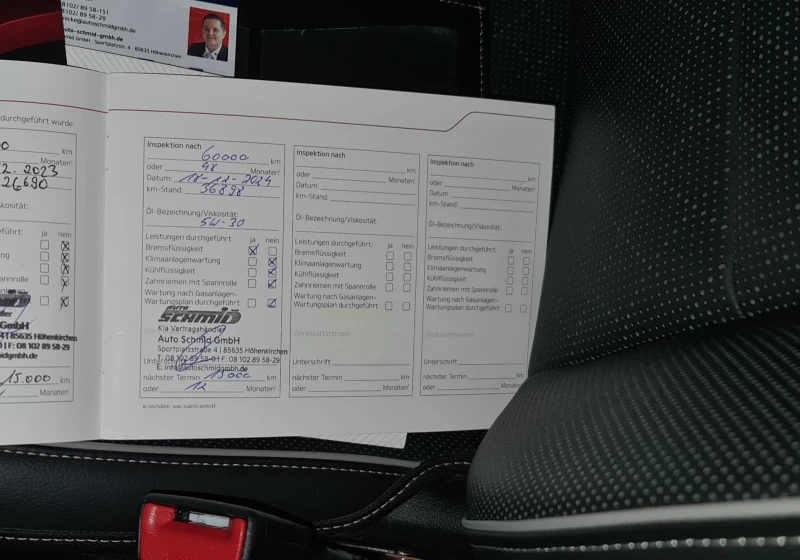 8102/ 89 58-151
8102/ 89 58-29
nicke@autoschmidgmbh.de
auto-schmid-gmbh.de
mid GmbH · Sportplatzstr. 4 · 85635 Höhenkirchen
durchgeführt wurde:
km
Monaten
2. 2023
26690
kosität:
führt: ja nein
GmbH
4 | 85635 Höhenkirchen
08 102 89 58-29
midgmbh.de
15.000 km
Monaten
Inspektion nach
60000 km
oder 48 Monaten
Datum: 18-12-2024
km-Stand: 36898
Öl-Bezeichnung/Viskosität:
5W-30
Leistungen durchgeführt: ja nein
Bremsflüssigkeit
Klimaanlagenwartung
Kühlflüssigkeit
Zahnriemen mit Spannrolle
Wartung nach Gasanlagen-
Wartungsplan durchgeführt
AUTO SCHMID
Kia Vertragshändler
Auto Schmid GmbH
Sportplatzstraße 4 | 85635 Höhenkirchen
T: 08 102 89 58-0 | F: 08 102 89 58-29
E: info@autoschmidgmbh.de
Unterschrift
nächster Termin 15000 km
oder 12 Monaten
je nachdem, was zuerst eintritt
Inspektion nach
km
oder Monaten
Datum:
km-Stand:
Öl-Bezeichnung/Viskosität:
Leistungen durchgeführt: ja nein
Bremsflüssigkeit
Klimaanlagenwartung
Kühlflüssigkeit
Zahnriemen mit Spannrolle
Wartung nach Gasanlagen-
Wartungsplan durchgeführt
Werkstattstempel
Unterschrift
nächster Termin km
oder Monaten
Inspektion nach
km
oder Monaten
Datum:
km-Stand:
Öl-Bezeichnung/Viskosität:
Leistungen durchgeführt: ja nein
Bremsflüssigkeit
Klimaanlagenwartung
Kühlflüssigkeit
Zahnriemen mit Spannrolle
Wartung nach Gasanlagen-
Wartungsplan durchgeführt
Werkstattstempel
Unterschrift
nächster Termin km
oder Monaten